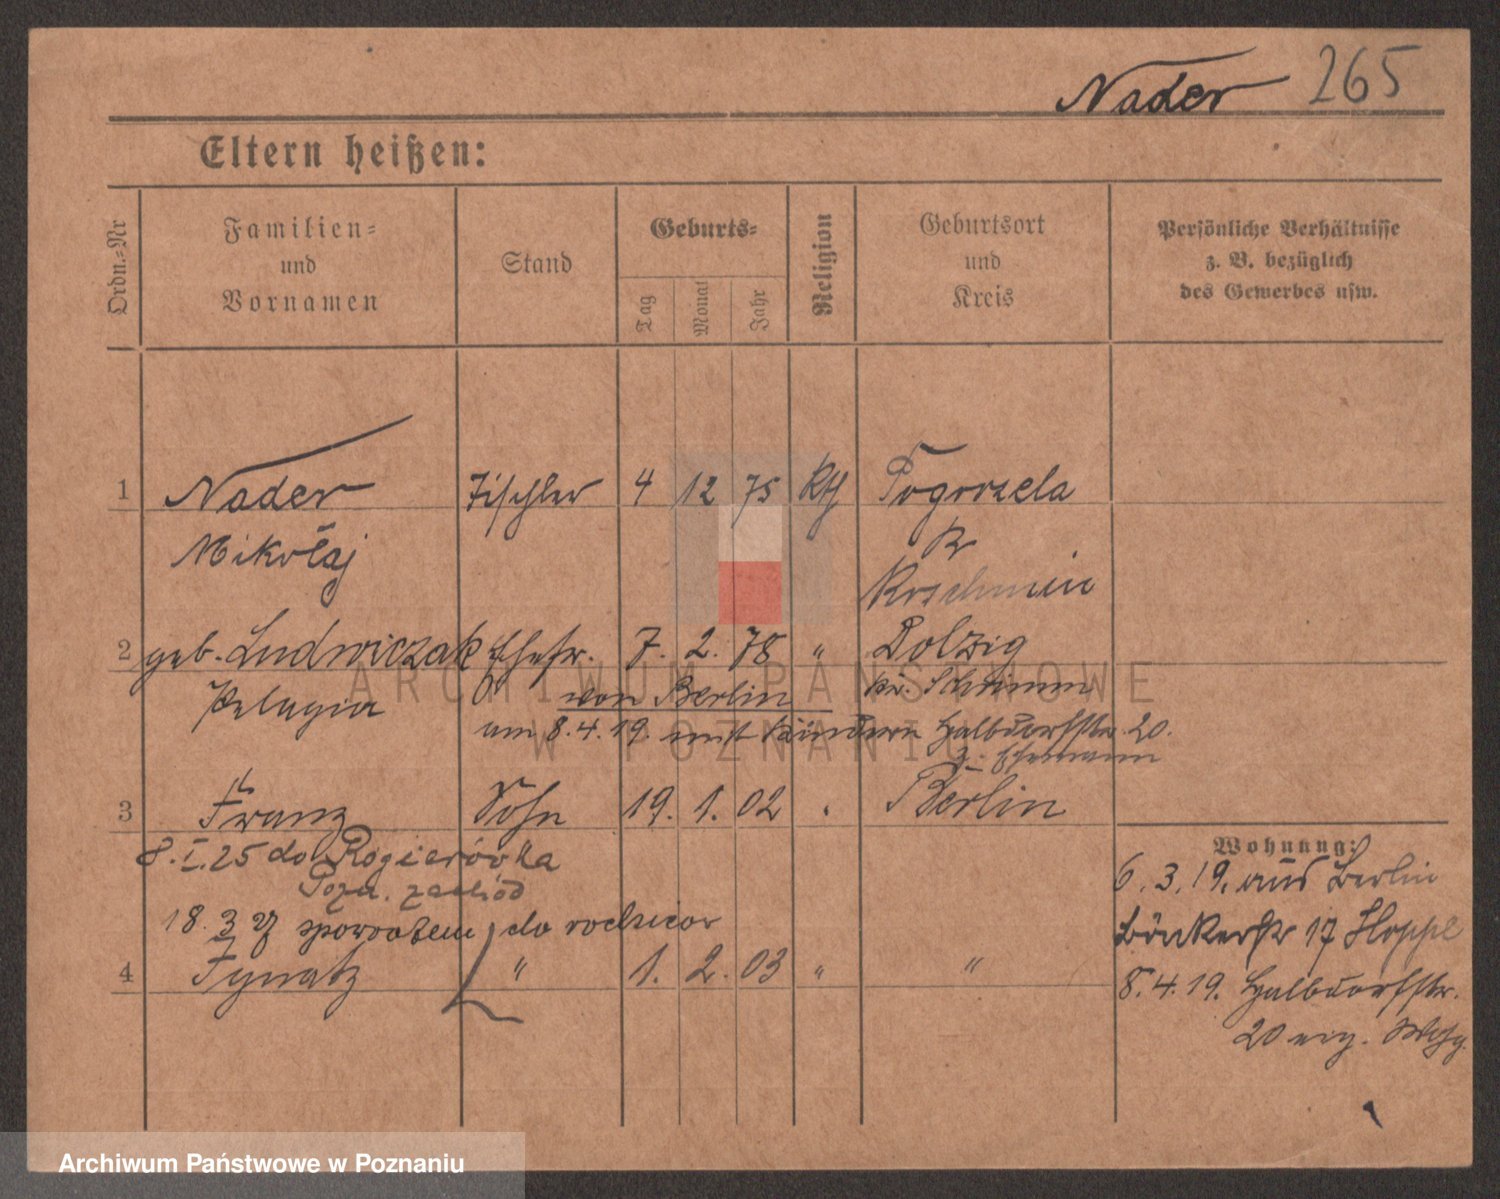 Nader 265
Eltern heißen:
Ordn.-Nr
Familien-
und
Vornamen
Stand
Geburts-
Tag
Monat
Jahr
Religion
Geburtsort
und
Kreis
Persönliche Verhältnisse
z. B. bezüglich
des Gewerbes usw.
1 Nader Tischler 4 12 75 Kth Pogorzela
Mikołaj Kr
Koschmin
2 geb. Ludwiczak Ehefr. 7. 2. 78 " Dolzig
Pelagia von Berlin Kr. Schrimm
am 8.4.19. mit Kindern Halbdorfstr. 20.
z. Ehemann
3 Franz Sohn 19. 1. 02 " Berlin
8.I.25 do Rogierówka
Pozn. zachód
18.3 spowrotem do rodzicow
4 Ignatz " 1. 2. 03 " "
Wohnung:
6.3.19. aus Berlin
Bäckerstr 17
8.4.19. Halbdorfstr.
20 eig. Whg.
ARCHIWUM PAŃSTWOWE
W POZNANIU
Archiwum Państwowe w Poznaniu